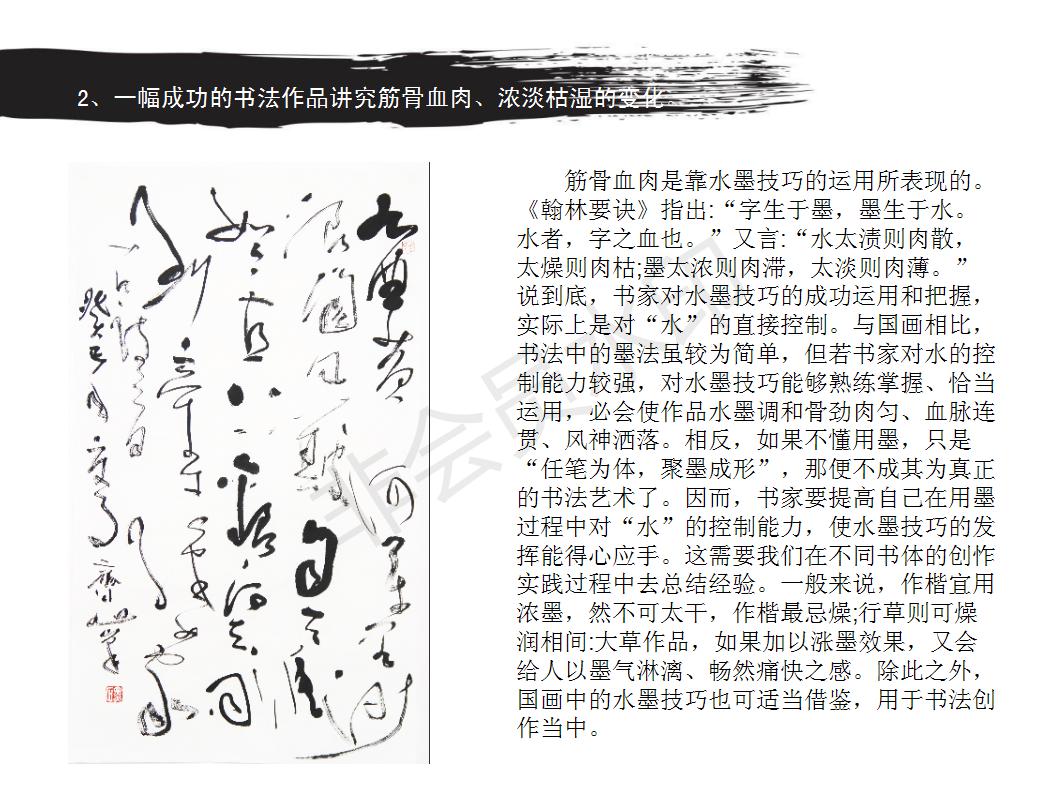 2、一幅成功的书法作品讲究筋骨血肉、浓淡枯湿的变化。
九曲黄河万里沙
浪淘风簸自天涯
如今直上银河去同
到牵牛织女家
筋骨血肉是靠水墨技巧的运用所表现的。
《翰林要诀》指出:“字生于墨，墨生于水。
水者，字之血也。”又言:“水太渍则肉散，
太燥则肉枯;墨太浓则肉滞，太淡则肉薄。”
说到底，书家对水墨技巧的成功运用和把握，
实际上是对“水”的直接控制。与国画相比，
书法中的墨法虽较为简单，但若书家对水的控
制能力较强，对水墨技巧能够熟练掌握、恰当
运用，必会使作品水墨调和骨劲肉匀、血脉连
贯、风神洒落。相反，如果不懂用墨，只是
“任笔为体，聚墨成形”，那便不成其为真正
的书法艺术了。因而，书家要提高自己在用墨
过程中对“水”的控制能力，使水墨技巧的发
挥能得心应手。这需要我们在不同书体的创作
实践过程中去总结经验。一般来说，作楷宜用
浓墨，然不可太干，作楷最忌燥;行草则可燥
润相间:大草作品，如果加以涨墨效果，又会
给人以墨气淋漓、畅然痛快之感。除此之外，
国画中的水墨技巧也可适当借鉴，用于书法创
作当中。
非会员水印